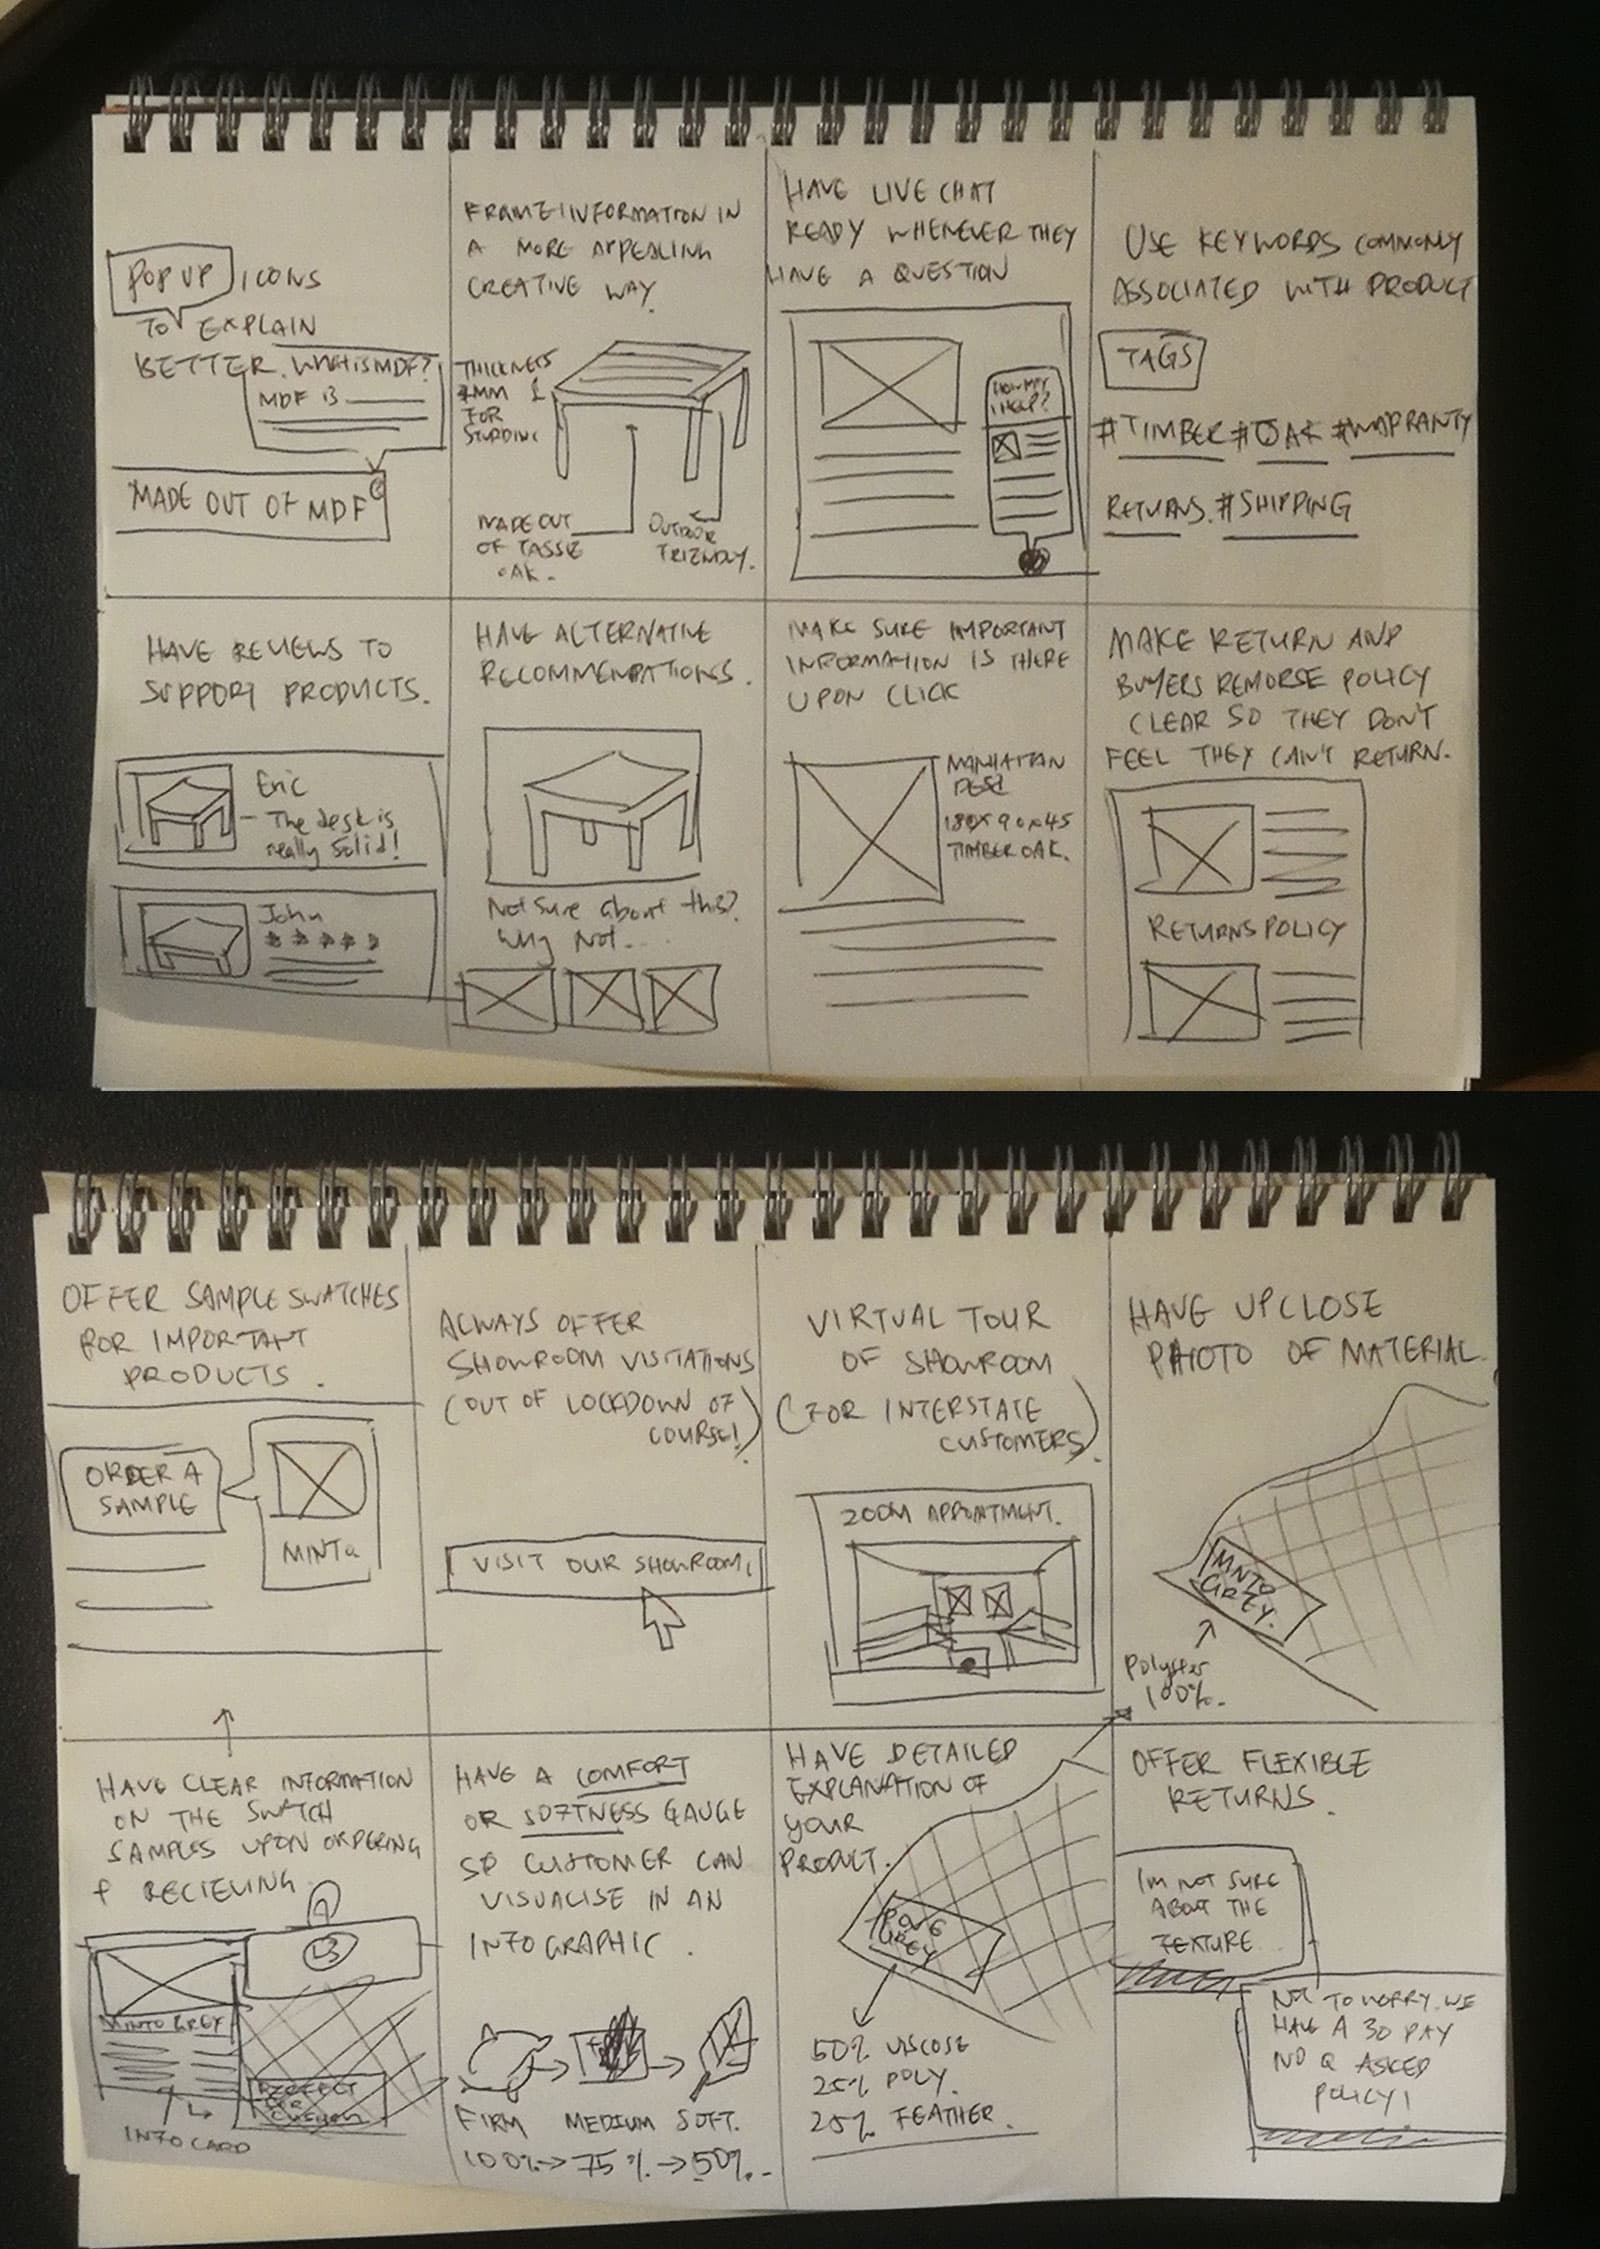 POP UP ICONS
TO EXPLAIN
BETTER.
WHAT IS MDF?
MDF IS
MADE OUT OF MDF
FRAME INFORMATION IN
A MORE APPEALING
CREATIVE WAY.
THICKNESS
4MM
FOR
MADE OUT
OF TASSIE
OAK.
OUTDOOR
FRIENDLY.
HAVE LIVE CHAT
READY WHENEVER THEY
HAVE A QUESTION
HOW MAY
I HELP?
USE KEYWORDS COMMONLY
ASSOCIATED WITH PRODUCT
TAGS
#TIMBER #OAK #WARRANTY
RETURNS. #SHIPPING
HAVE REVIEWS TO
SUPPORT PRODUCTS.
Eric
- The desk is
really solid!
John
HAVE ALTERNATIVE
RECOMMENDATIONS.
Not sure about this?
Why Not...
MAKE SURE IMPORTANT
INFORMATION IS THERE
UPON CLICK
MANHATTAN
DESK
180X90X45
TIMBER OAK.
MAKE RETURN AND
BUYERS REMORSE POLICY
CLEAR SO THEY DON'T
FEEL THEY CAN'T RETURN.
RETURNS POLICY
OFFER SAMPLE SWATCHES
FOR IMPORTANT
PRODUCTS.
ORDER A
SAMPLE
MINTO
ALWAYS OFFER
SHOWROOM VISITATIONS
(OUT OF LOCKDOWN OF
COURSE!)
VISIT OUR SHOWROOM!
VIRTUAL TOUR
OF SHOWROOM
(FOR INTERSTATE
CUSTOMERS)
ZOOM APPOINTMENT.
HAVE UPCLOSE
PHOTO OF MATERIAL.
MINTO
GREY.
Polyster
100%.
HAVE CLEAR INFORMATION
ON THE SWATCH
SAMPLES UPON ORDERING
+ RECIEVING
MINTO GREY
PERFECT
FOR
CUSHION
INFO CARD
HAVE A COMFORT
OR SOFTNESS GAUGE
SO CUSTOMER CAN
VISUALISE IN AN
INFOGRAPHIC.
FIRM MEDIUM SOFT.
100% → 75% → 50%.
HAVE DETAILED
EXPLANATION OF
YOUR
PRODUCT.
GREY
50% VISCOSE
25% POLY.
25% FEATHER.
OFFER FLEXIBLE
RETURNS.
I'M NOT SURE
ABOUT THE
TEXTURE...
NOT TO WORRY. WE
HAVE A 30 DAY
NO Q ASKED
POLICY!